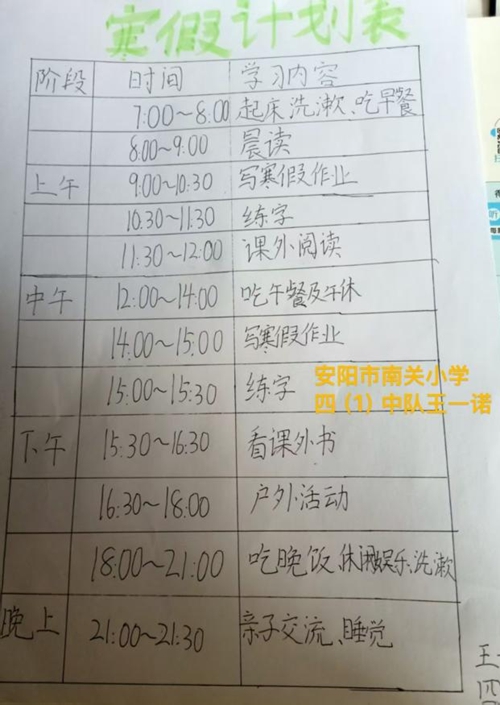 寒假计划表
阶段 时间 学习内容
7:00~8:00 起床、洗漱、吃早餐
8:00~9:00 晨读
上午 9:00~10:30 写寒假作业
10:30~11:30 练字
11:30~12:00 课外阅读
中午 12:00~14:00 吃午餐及午休
14:00~15:00 写寒假作业
15:00~15:30 练字
安阳市南关小学
四 (1) 中队王一诺
下午 15:30~16:30 看课外书
16:30~18:00 户外活动
18:00~21:00 吃晚饭、休闲娱乐、洗漱
晚上 21:00~21:30 亲子交流、睡觉
王
四